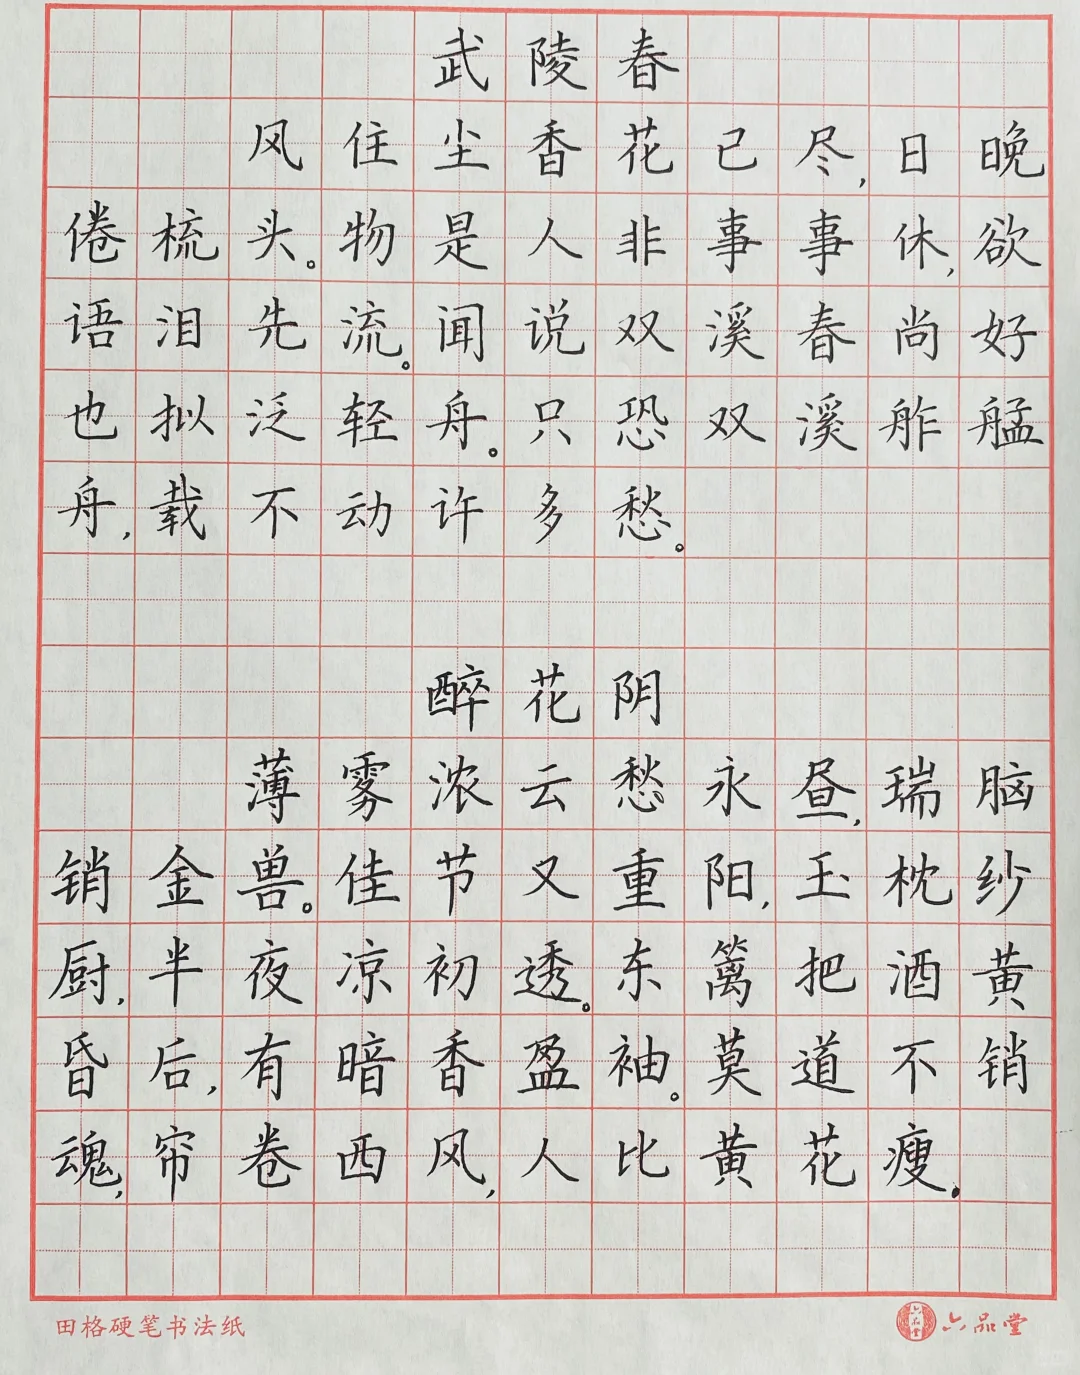 武陵春
风住尘香花已尽,日晚
倦梳头。物是人非事事休,欲
语泪先流。闻说双溪春尚好
也拟泛轻舟。只恐双溪舴艋
舟,载不动许多愁。
醉花阴
薄雾浓云愁永昼,瑞脑
销金兽。佳节又重阳,玉枕纱
厨,半夜凉初透。东篱把酒黄
昏后,有暗香盈袖。莫道不销
魂,帘卷西风,人比黄花瘦.
田格硬笔书法纸
六品堂